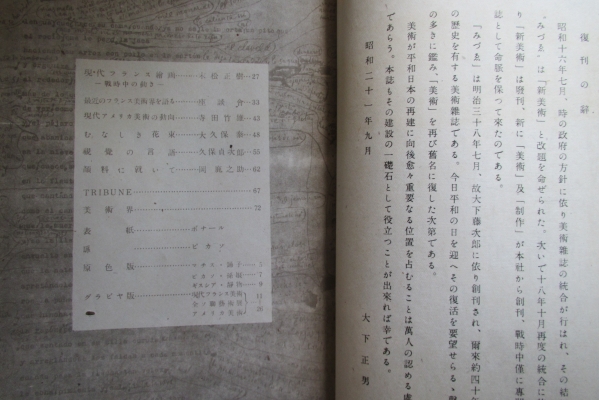 復刊の辞
昭和十六年七月、時の政府の方針に依り美術雑誌の統合が行はれ、その結
「みづゑ」は「新美術」と改題を命ぜられた。次いで十八年十月再度の統合に
り「新美術」は廢刊、新に「美術」及「制作」が本社から創刊、戰時中僅に專
誌として命脈を保つて來たのである。
「みづゑ」は明治三十八年七月、故大下藤次郎に依り創刊され、爾來約四十年
の歷史を有する美術雜誌である。今日平和の日を迎へその復活を要望せらるゝ聲
の多きに鑑み、「美術」を再び舊名に復した次第である。
美術が平和日本の再建に向後愈々重要なる位置を占むることは萬人の認める處
であらう。本誌もその建設の一礎石として役立つことが出來れば幸である。
昭和二十一年九月
大下正男
現代フランス繪畫 末松正樹 27
―戰時中の動き―
最近のフランス美術界を語る 座談會 33
現代アメリカ美術の動向 寺田竹雄 43
むなしき花束 大久保泰 48
視覺の言語 久保貞次郎 55
顏料に就いて 岡鹿之助 62
TRIBUNE 67
美術界 72
表紙 ボナール
扉 ピカソ
原色版 マチス・
ピカソ・ 7
9
グラビヤ版 現代フランス美術 11
アメリカ美術 26